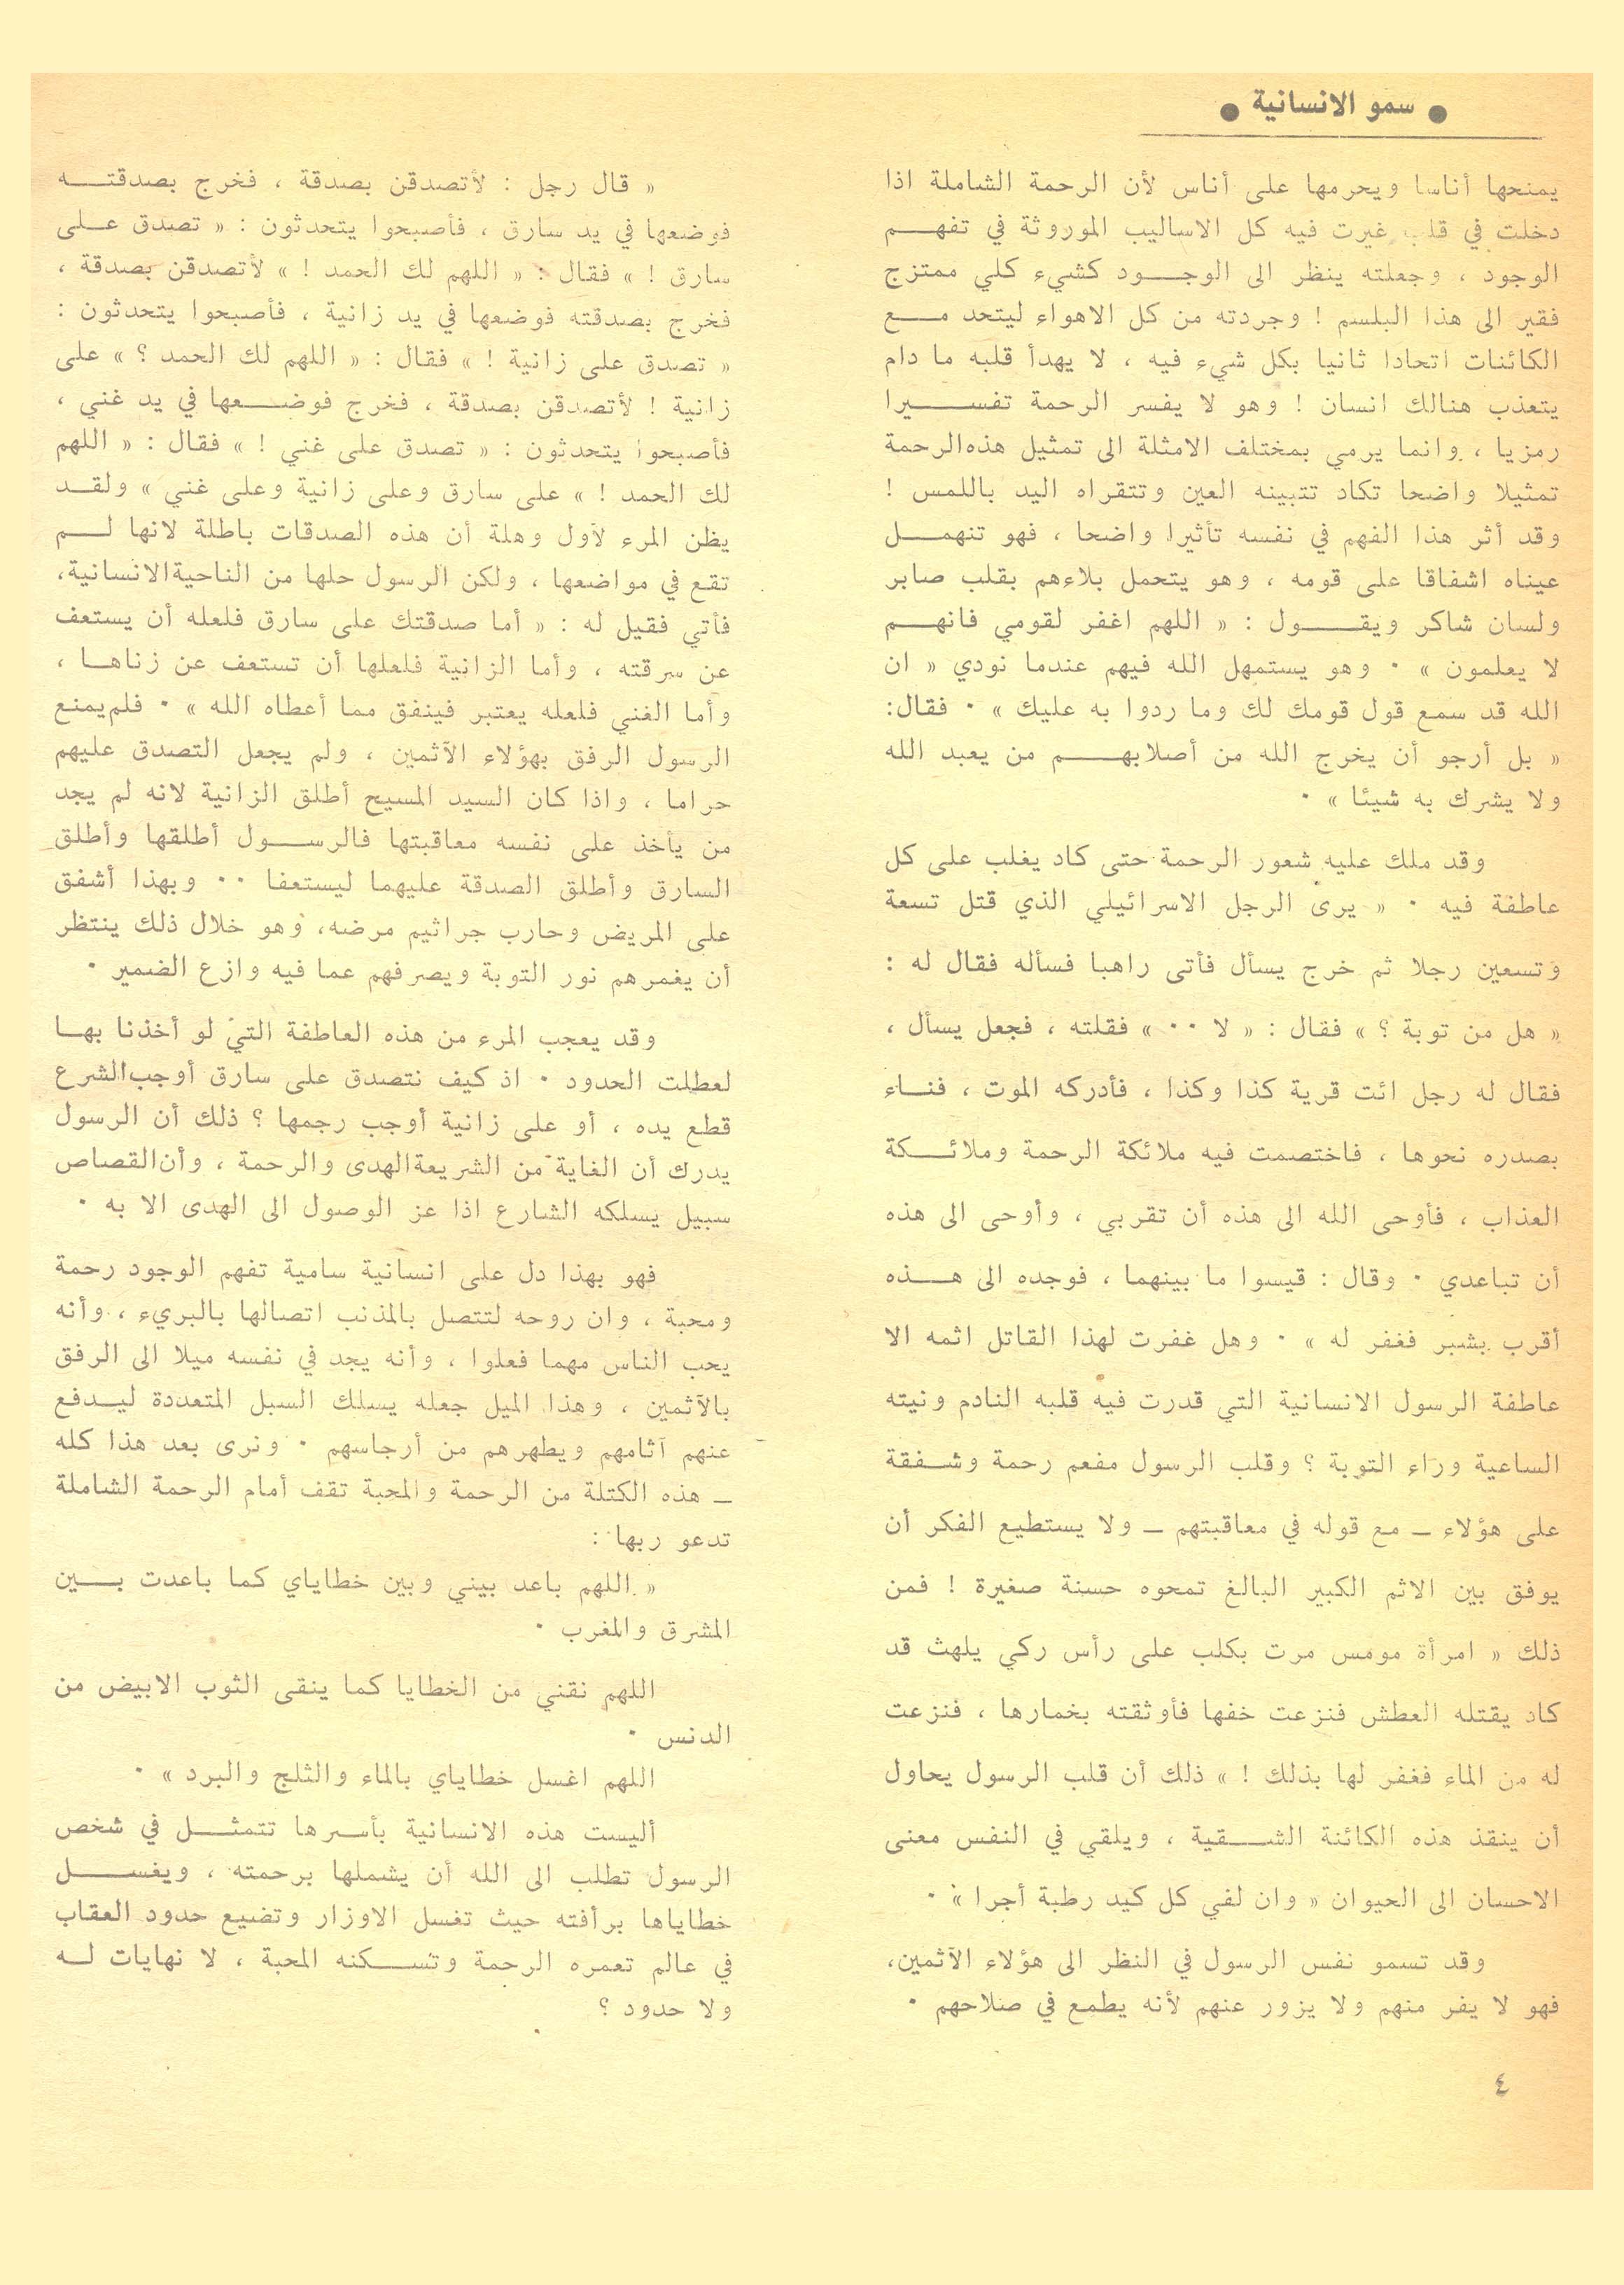 ● سمو الانسانية ●
يمنحها أناسا ويحرمها على أناس لأن الرحمة الشاملة اذا
دخلت في قلب غيرت فيه كل الاساليب الموروثة في تفهم
الوجود ، وجعلته ينظر الى الوجود كشيء كلي ممتزج
فقير الى هذا البلسم ! وجردته من كل الاهواء ليتحد مع
الكائنات اتحادا ثانيا بكل شيء فيه ، لا يهدأ قلبه ما دام
يتعذب هنالك انسان ! وهو لا يفسر الرحمة تفسيرا
رمزيا ، وانما يرمي بمختلف الامثلة الى تمثيل هذه الرحمة
تمثيلا واضحا تكاد تتبينه العين وتتقراه اليد باللمس !
وقد أثر هذا الفهم في نفسه تأثيرا واضحا ، فهو تنهمل
عيناه اشفاقا على قومه ، وهو يتحمل بلاءهم بقلب صابر
ولسان شاكر ويقول : « اللهم اغفر لقومي فانهم
لا يعلمون » ٠ وهو يستمهل الله فيهم عندما نودي « ان
الله قد سمع قول قومك لك وما ردوا به عليك » ٠ فقال:
« بل أرجو أن يخرج الله من أصلابهم من يعبد الله
ولا يشرك به شيئا » ٠
وقد ملك عليه شعور الرحمة حتى كاد يغلب على كل
عاطفة فيه ٠ « يرى الرجل الاسرائيلي الذي قتل تسعة
وتسعين رجلا ثم خرج يسأل فأتى راهبا فسأله فقال له :
« هل من توبة ؟ » فقال : « لا ٠٠ » فقلته ، فجعل يسأل ،
فقال له رجل ائت قرية كذا وكذا ، فأدركه الموت ، فناء
بصدره نحوها ، فاختصمت فيه ملائكة الرحمة وملائكة
العذاب ، فأوحى الله الى هذه أن تقربي ، وأوحى الى هذه
أن تباعدي ٠ وقال : قيسوا ما بينهما ، فوجده الى هذه
أقرب بشبر فغفر له » ٠ وهل غفرت لهذا القاتل اثمه الا
عاطفة الرسول الانسانية التي قدرت فيه قلبه النادم ونيته
الساعية وراء التوبة ؟ وقلب الرسول مفعم رحمة وشفقة
على هؤلاء ــ مع قوله في معاقبتهم ــ ولا يستطيع الفكر أن
يوفق بين الاثم الكبير البالغ تمحوه حسنة صغيرة ! فمن
ذلك « امرأة مومس مرت بكلب على رأس ركي يلهث قد
كاد يقتله العطش فنزعت خفها فأوثقته بخمارها ، فنزعت
له من الماء فغفر لها بذلك ! » ذلك أن قلب الرسول يحاول
أن ينقذ هذه الكائنة الشقية ، ويلقي في النفس معنى
الاحسان الى الحيوان « وان لفي كل كيد رطبة أجرا » ٠
وقد تسمو نفس الرسول في النظر الى هؤلاء الآثمين،
فهو لا يفر منهم ولا يزور عنهم لأنه يطمع في صلاحهم ٠
« قال رجل : لأتصدقن بصدقة ، فخرج بصدقته
فوضعها في يد سارق ، فأصبحوا يتحدثون : « تصدق على
سارق ! » فقال : « اللهم لك الحمد ! » لأتصدقن بصدقة ،
فخرج بصدقته فوضعها في يد زانية ، فأصبحوا يتحدثون :
« تصدق على زانية ! » فقال : « اللهم لك الحمد ؟ » على
زانية ! لأتصدقن بصدقة ، فخرج فوضعها في يد غني ،
فأصبحوا يتحدثون : « تصدق على غني ! » فقال : « اللهم
لك الحمد ! » على سارق وعلى زانية وعلى غني » ولقد
يظن المرء لأول وهلة أن هذه الصدقات باطلة لانها لم
تقع في مواضعها ، ولكن الرسول حلها من الناحية الانسانية،
فأتي فقيل له : « أما صدقتك على سارق فلعله أن يستعف
عن سرقته ، وأما الزانية فلعلها أن تستعف عن زناها ،
وأما الغني فلعله يعتبر فينفق مما أعطاه الله » ٠ فلم يمنع
الرسول الرفق بهؤلاء الآثمين ، ولم يجعل التصدق عليهم
حراما ، واذا كان السيد المسيح أطلق الزانية لانه لم يجد
من يأخذ على نفسه معاقبتها فالرسول أطلقها وأطلق
السارق وأطلق الصدقة عليهما ليستعفا ٠٠ وبهذا أشفق
على المريض وحارب جراثيم مرضه، وهو خلال ذلك ينتظر
أن يغمرهم نور التوبة ويصرفهم عما فيه وازع الضمير ٠
وقد يعجب المرء من هذه العاطفة التي لو أخذنا بها
لعطلت الحدود ٠ اذ كيف نتصدق على سارق أوجب الشرع
قطع يده ، أو على زانية أوجب رجمها ؟ ذلك أن الرسول
يدرك أن الغاية من الشريعة الهدى والرحمة ، وأن القصاص
سبيل يسلكه الشارع اذا عز الوصول الى الهدى الا به ٠
فهو بهذا دل على انسانية سامية تفهم الوجود رحمة
ومحبة ، وان روحه لتتصل بالمذنب اتصالها بالبريء ، وأنه
يحب الناس مهما فعلوا ، وأنه يجد في نفسه ميلا الى الرفق
بالآثمين ، وهذا الميل جعله يسلك السبل المتعددة ليدفع
عنهم آثامهم ويطهرهم من أرجاسهم ٠ ونرى بعد هذا كله
ــ هذه الكتلة من الرحمة والمحبة تقف أمام الرحمة الشاملة
تدعو ربها :
« اللهم باعد بيني وبين خطاياي كما باعدت بين
المشرق والمغرب ٠
اللهم نقني من الخطايا كما ينقى الثوب الابيض من
الدنس ٠
اللهم اغسل خطاياي بالماء والثلج والبرد » ٠
أليست هذه الانسانية بأسرها تتمثل في شخص
الرسول تطلب الى الله أن يشملها برحمته ، ويغسل
خطاياها برأفته حيث تغسل الاوزار وتضيع حدود العقاب
في عالم تعمره الرحمة وتسكنه المحبة ، لا نهايات له
ولا حدود ؟
٤